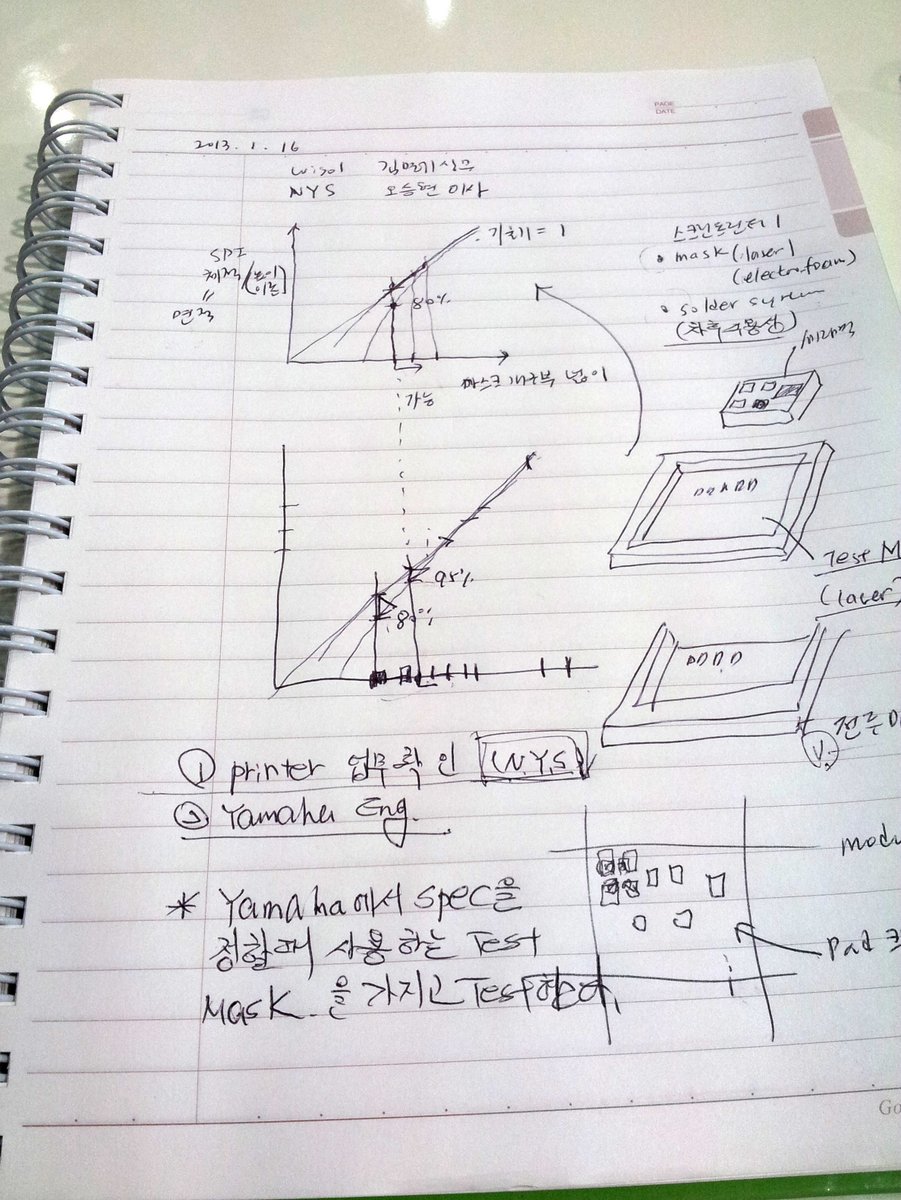 PAGE
DATE
2013. 1. 16
Wisol
NYS 오승현 이사
SPI
체적 (높이
면적
기울기 = 1
80%
마스크 개구부 넓이
가능
스크린프린터
• mask (laser)
(electrofoam)
• solder
95%
80%
Test M
(laser)
① printer 업무확인 (N.Y.S)
② Yamaha Eng.
V.
* Yamaha에서 spec을
정할때 사용하는 Test
Mask 을 가지고 Test하다.
modu
Pad 크
Go